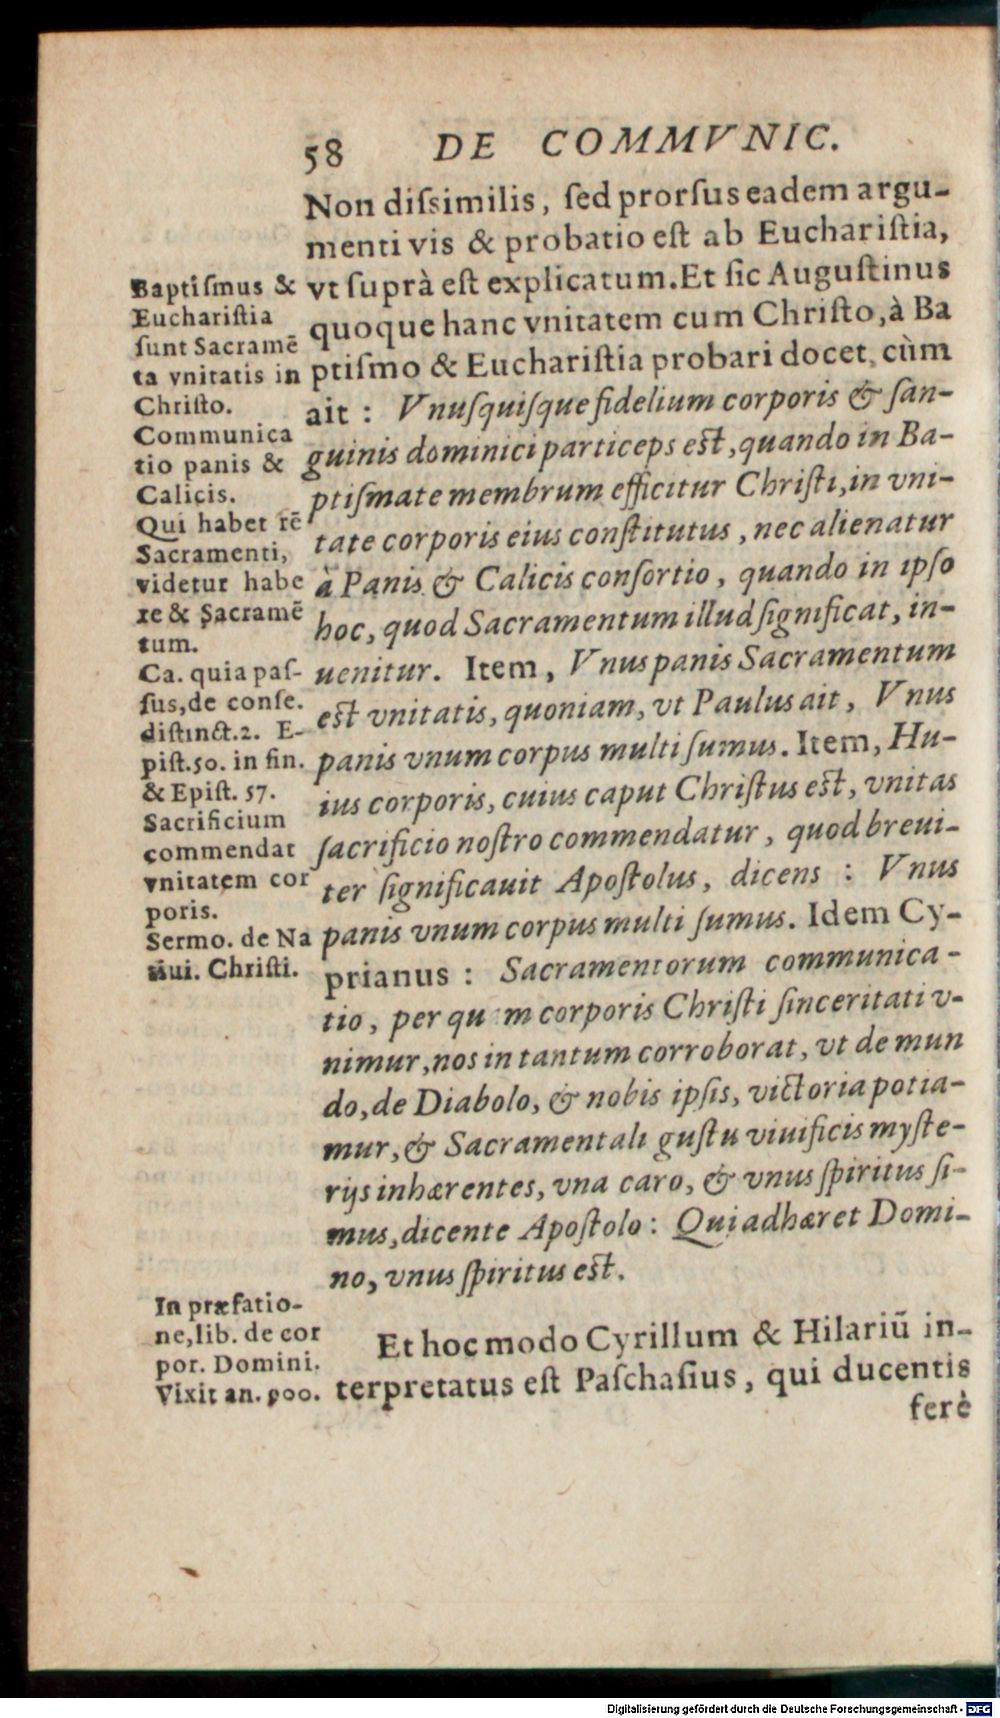 58 DE COMMVNIC.
Non dissimilis, sed prorsus eadem argu-
menti vis & probatio est ab Eucharistia,
vt suprà est explicatum. Et sic Augustinus
quoque hanc vnitatem cum Christo, à Ba
ptismo & Eucharistia probari docet, cùm
ait : Vnusquisque fidelium corporis & san-
guinis dominici particeps est, quando in Ba-
ptismate membrum efficitur Christi, in vni-
tate corporis eius constitutus, nec alienatur
à Panis & Calicis consortio, quando in ipso
hoc, quod Sacramentum illud significat, in-
uenitur. Item, Vnus panis Sacramentum
est vnitatis, quoniam, vt Paulus ait, Vnus
panis vnum corpus multi sumus. Item, Hu-
ius corporis, cuius caput Christus est, vnitas
sacrificio nostro commendatur, quod breui-
ter significauit Apostolus, dicens : Vnus
panis vnum corpus multi sumus. Idem Cy-
prianus : Sacramentorum communica-
tio, per qu m corporis Christi sinceritati v-
nimur, nos in tantum corroborat, vt de mun
do, de Diabolo, & nobis ipsis, victoria potia-
mur, & Sacramentali gustu viuificis myste-
rijs inhærentes, vna caro, & vnus spiritus si-
mus, dicente Apostolo : Qui adhæret Domi-
no, vnus spiritus est.
Et hoc modo Cyrillum & Hilariū in-
terpretatus est Paschasius, qui ducentis
ferè
Baptismus &
Eucharistia
sunt Sacramē
ta vnitatis in
Christo.
Communica
tio panis &
Calicis.
Qui habet rē
Sacramenti,
videtur habe
re & Sacramē
tum.
Ca. quia pas-
sus, de conse.
distinct. 2. E-
pist. 50. in fin.
& Epist. 57.
Sacrificium
commendat
vnitatem cor
poris.
Sermo. de Na
tiui. Christi.
In præfatio-
ne, lib. de cor
por. Domini.
Vixit an. 900.
Digitalisierung gefördert durch die Deutsche Forschungsgemeinschaft - DFG